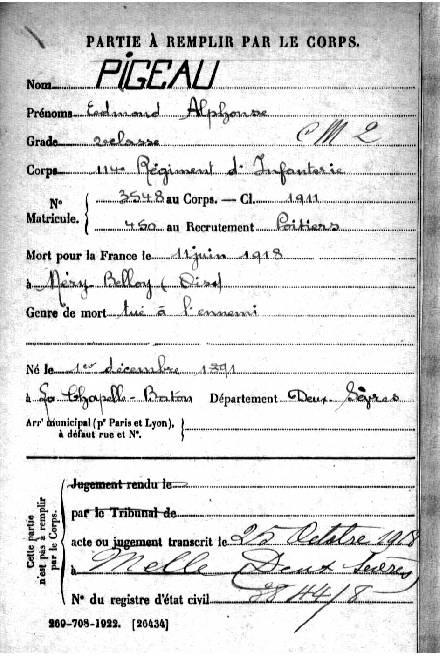 PARTIE À REMPLIR PAR LE CORPS.
Nom PIGEAU
Prénoms Edmond Alphonse
Grade 2e classe C M 2
Corps 114e Régiment d'Infanterie
N° Matricule. { 3548 au Corps. — Cl. 1911
450 au Recrutement Poitiers
Mort pour la France le 11 juin 1918
à Méry Belloy (Oise)
Genre de mort tué à l'ennemi
Né le 1er décembre 1891
à La Chapelle-Baton Département Deux-Sèvres
Arrt municipal (pr Paris et Lyon), à défaut rue et N°. }
Cette partie n'est pas à remplir par le Corps.
Jugement rendu le
par le Tribunal de
acte ou jugement transcrit le 25 Octobre 1918
à Melle (Deux Sèvres)
N° du registre d'état civil
269-708-1922. [26434]